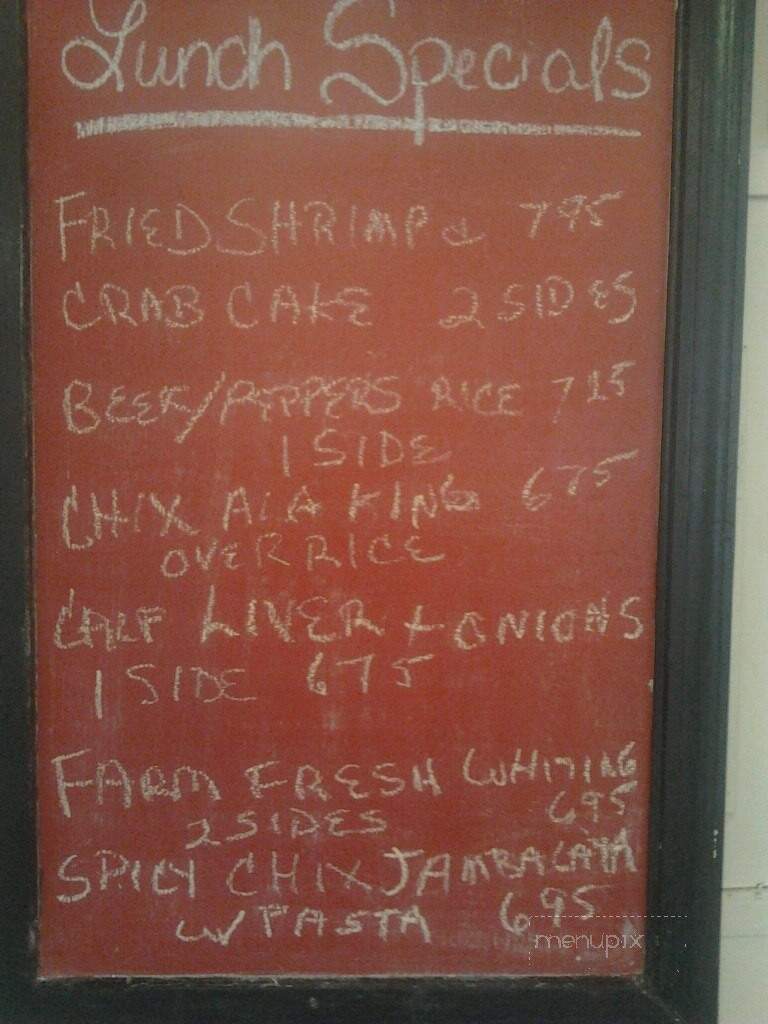 Lunch Specials
FRIED SHRIMP & 795
CRAB CAKE 2 SIDES
BEEF/PEPPERS RICE 725
1 SIDE
CHIX ALA KING 675
OVER RICE
CALF LIVER + ONIONS
1 SIDE 675
FARM FRESH WHITING
695
2 SIDES
SPICY CHIX JAMBALAYA
W/ PASTA 695
menupix